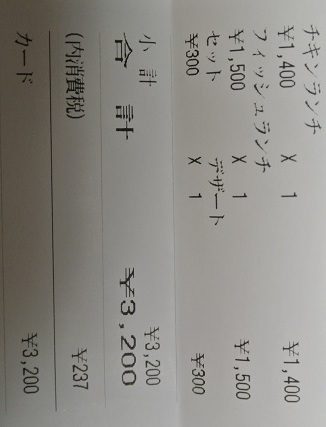 チキンランチ
¥1,400 X 1 ¥1,400
フィッシュランチ
¥1,500 X 1 ¥1,500
セット デザート
¥300 X 1 ¥300
小 計 ¥3,200
合 計 ¥3,200
(内消費税) ¥237
カード ¥3,200